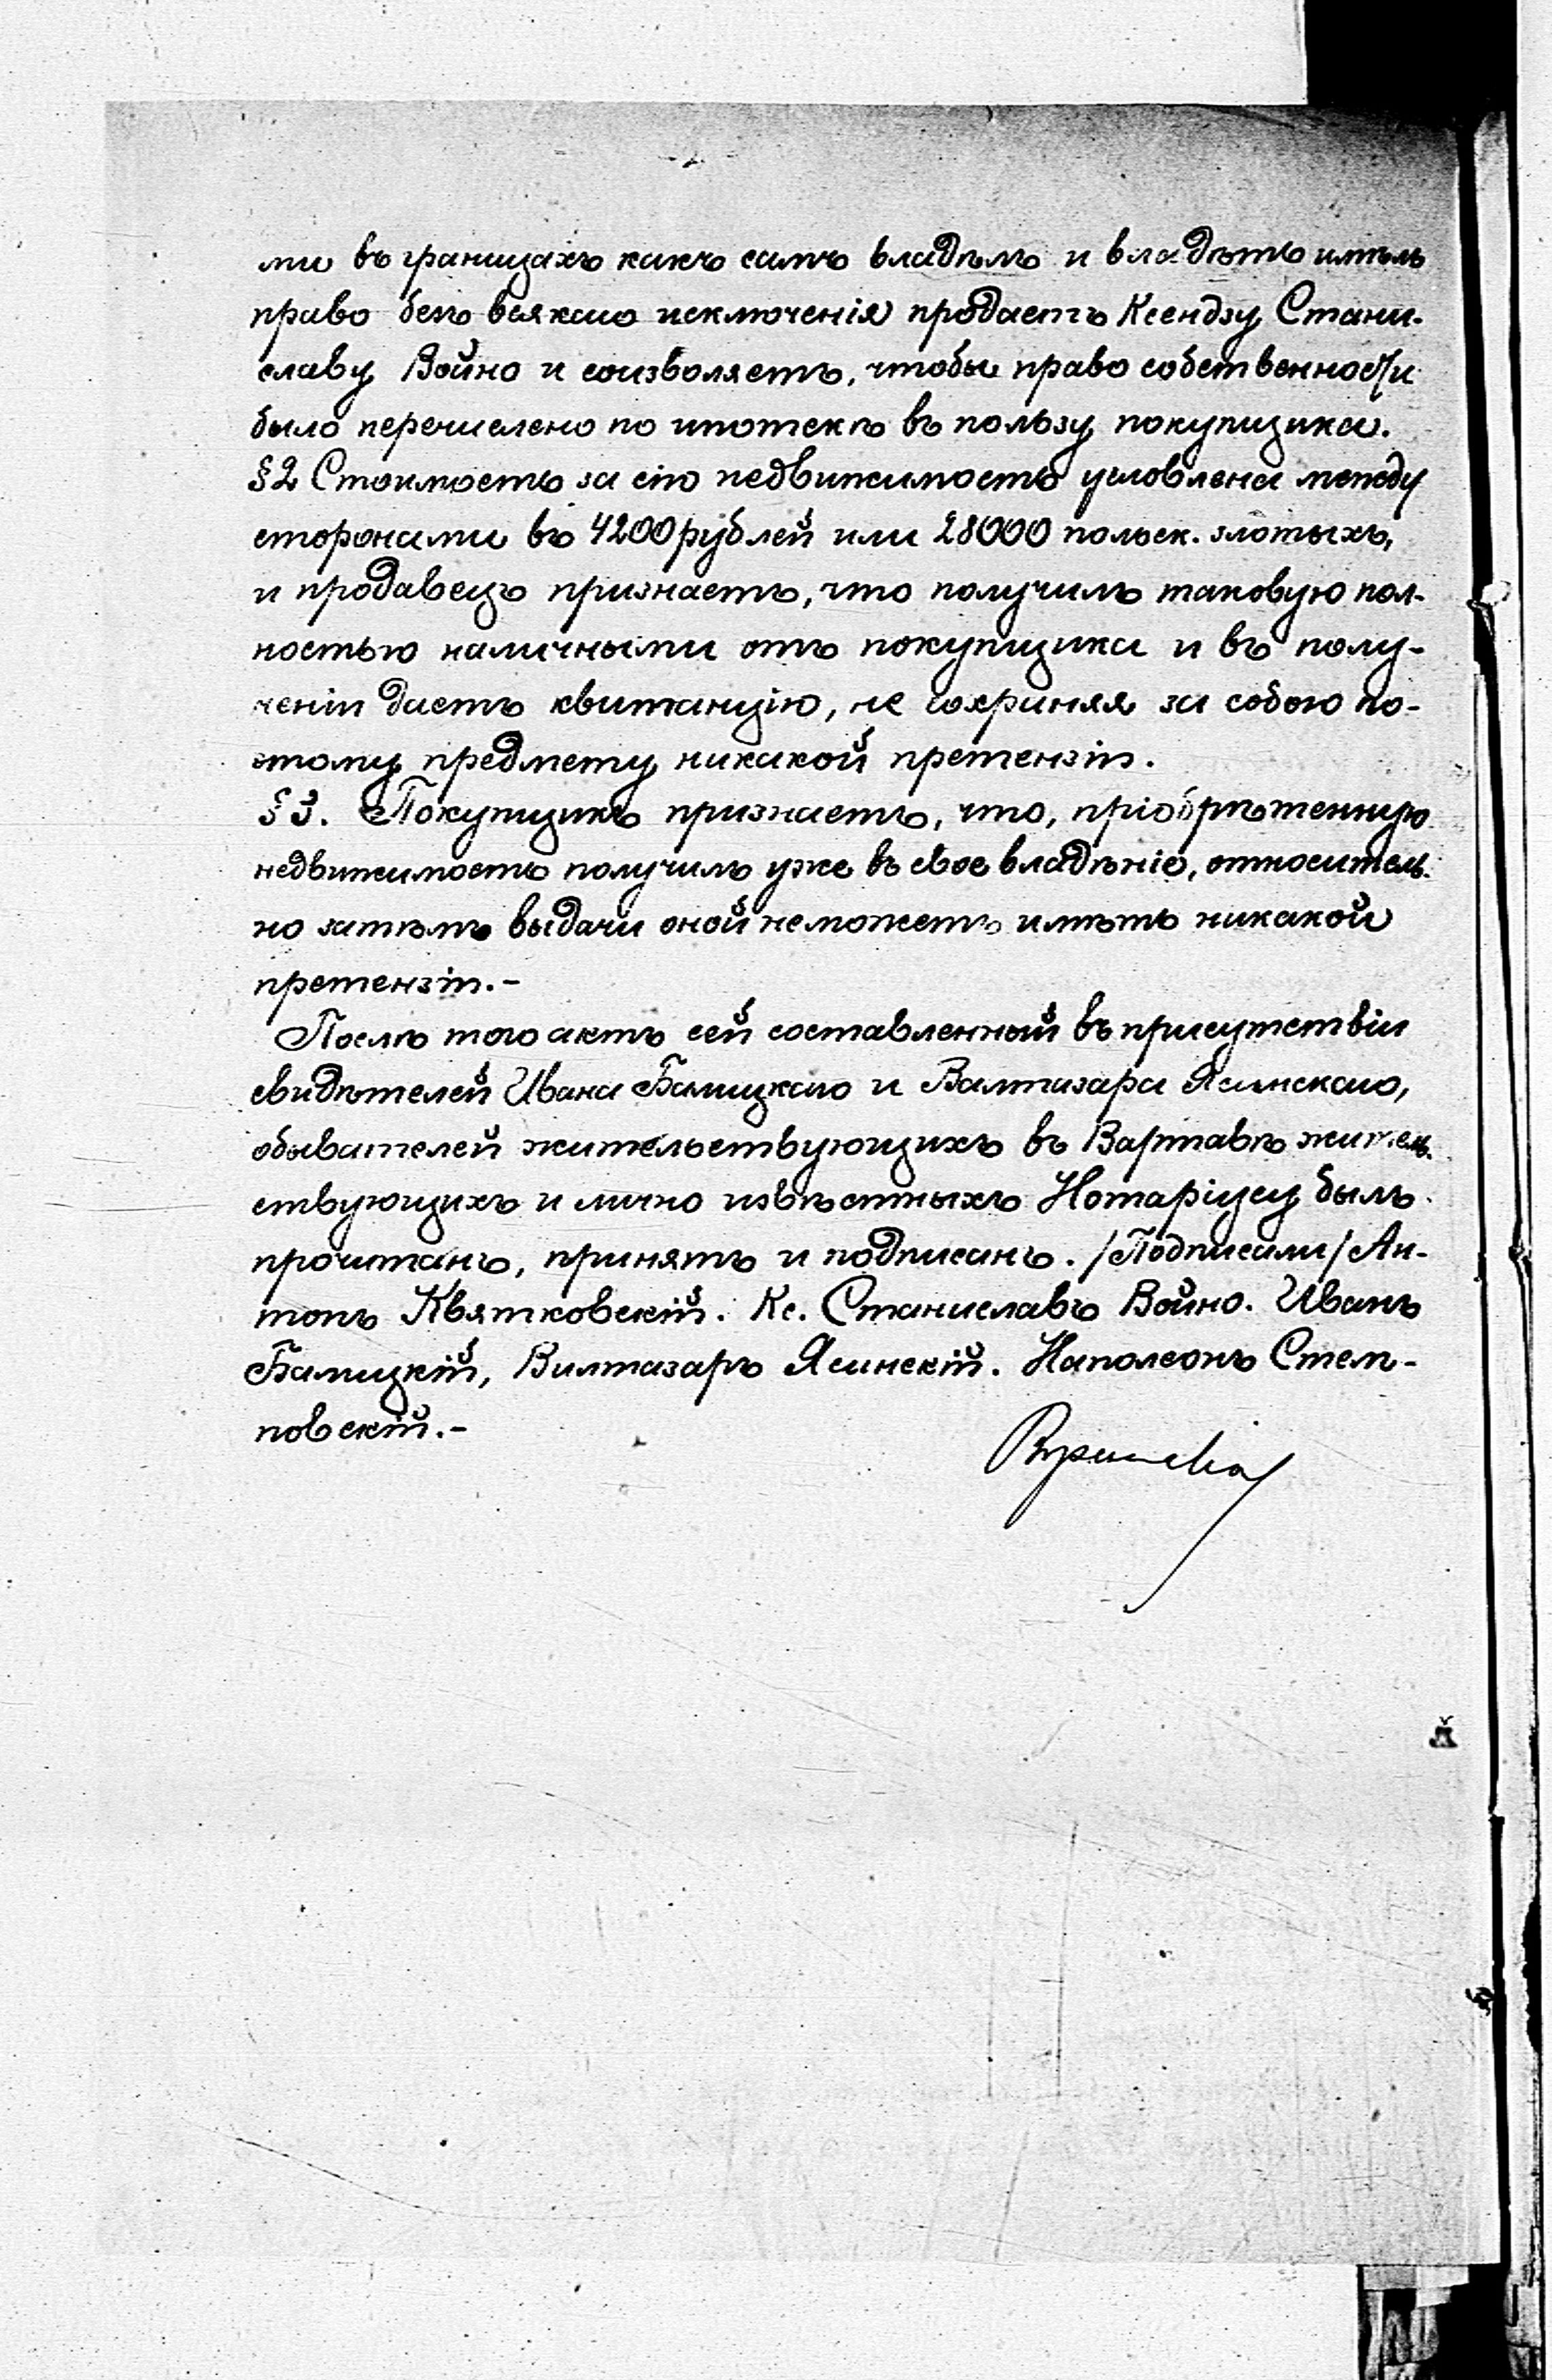 ми въ границахъ какъ самъ владѣлъ и владѣть имѣлъ
право безъ всякаго исключенія продаетъ Ксендзу Стани-
славу Войно и соизволяетъ, чтобы право собственности
было перечислено по ипотекѣ въ пользу покупщика.
§2 Стоимость за сію недвижимость условлена между
сторонами въ 4200 рублей или 28000 польск. злотыхъ,
и продавецъ признаетъ, что получилъ таковую пол-
ностью наличными отъ покупщика и въ полу-
ченіи даетъ квитанцію, не сохраняя за собою по-
этому предмету никакой претензіи.
§3. Покупщикъ признаетъ, что, пріобрѣтенную
недвижимость получилъ уже въ свое владѣніе, относитель-
но затѣмъ выдачи оной неможетъ имѣть никакой
претензіи.-
Послѣ того актъ сей составленный въ присутствіи
свидѣтелей Ивана Балицкаго и Валтазара Ясинскаго,
обывателей жительствующихъ въ Варшавѣ житель-
ствующихъ и лично извѣстныхъ Нотаріусу былъ
прочитанъ, принятъ и подписанъ. /Подписали/ Ан-
тонъ Квятковскій. Кс. Станиславъ Войно. Иванъ
Балицкій, Валтазаръ Ясинскій. Наполеонъ Стем-
повскій.-